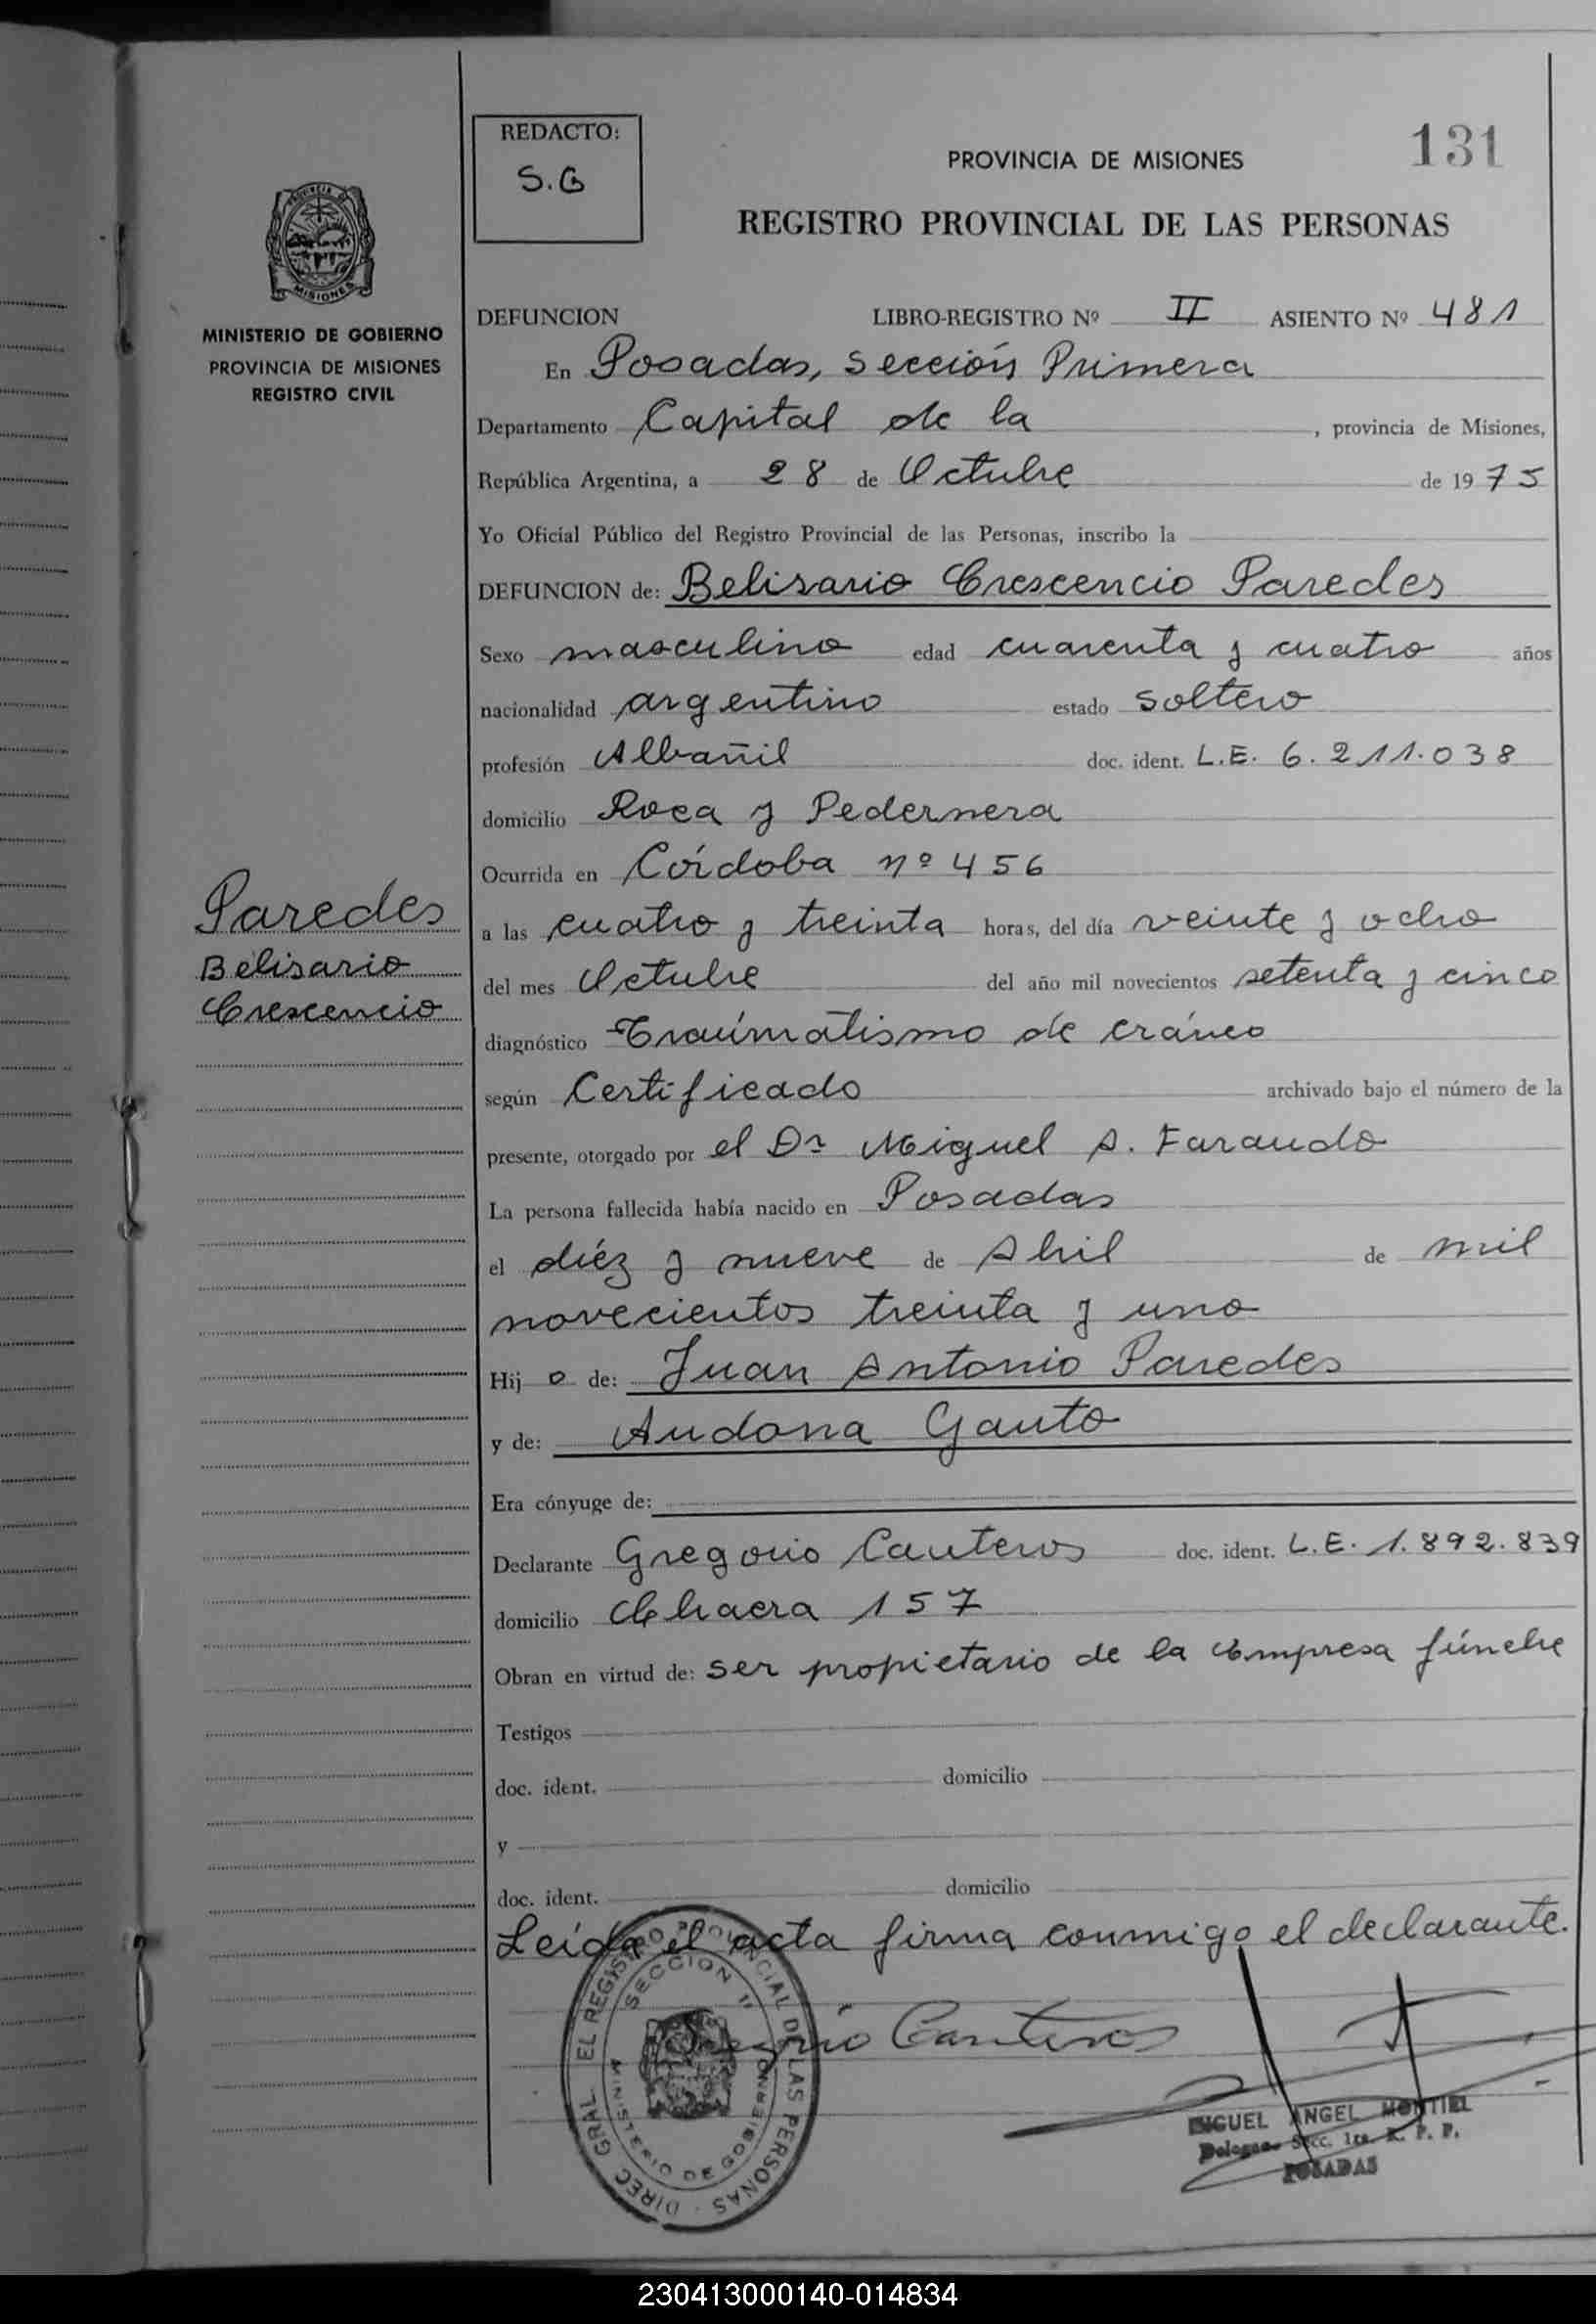 131
REDACTO:
S.G
PROVINCIA DE MISIONES
REGISTRO PROVINCIAL DE LAS PERSONAS
MISIONES
MINISTERIO DE GOBIERNO
PROVINCIA DE MISIONES
REGISTRO CIVIL
DEFUNCION LIBRO-REGISTRO Nº II ASIENTO Nº 481
En Posadas, Sección Primera
Departamento Capital de la , provincia de Misiones,
República Argentina, a 28 de Octubre de 1975
Yo Oficial Público del Registro Provincial de las Personas, inscribo la
DEFUNCION de: Belisario Crescencio Paredes
Sexo masculino edad cuarenta y cuatro años
nacionalidad argentino estado soltero
profesión Albañil doc. ident. L.E. 6.211.038
domicilio Roca y Pedernera
Ocurrida en Córdoba nº 456
Paredes
Belisario
Crescencio
a las cuatro y treinta horas, del día veinte y ocho
del mes Octubre del año mil novecientos setenta y cinco
diagnóstico Traúmatismo de cráneo
según Certificado archivado bajo el número de la
presente, otorgado por el Dr Miguel A. Farando
La persona fallecida había nacido en Posadas
el diéz y nueve de Abril de mil
novecientos treinta y uno
Hij o de: Juan Antonio Paredes
y de: Audona Gauto
Era cónyuge de:
Declarante Gregorio Canteros doc. ident. L.E. 1.892.839
domicilio Chacra 157
Obran en virtud de: ser propietario de la Empresa fúnebre
Testigos
doc. ident. domicilio
y
doc. ident. domicilio
Leída el acta firma conmigo el declarante.
DIREC. GRAL. EL REGISTRO PROVINCIAL DE LAS PERSONAS
SECCION 1ª
MINISTERIO DE GOBIERNO
Gregorio Canteros
MIGUEL ANGEL MONTIEL
Secc. 1ra. R. P. P.
POSADAS
230413000140-014834